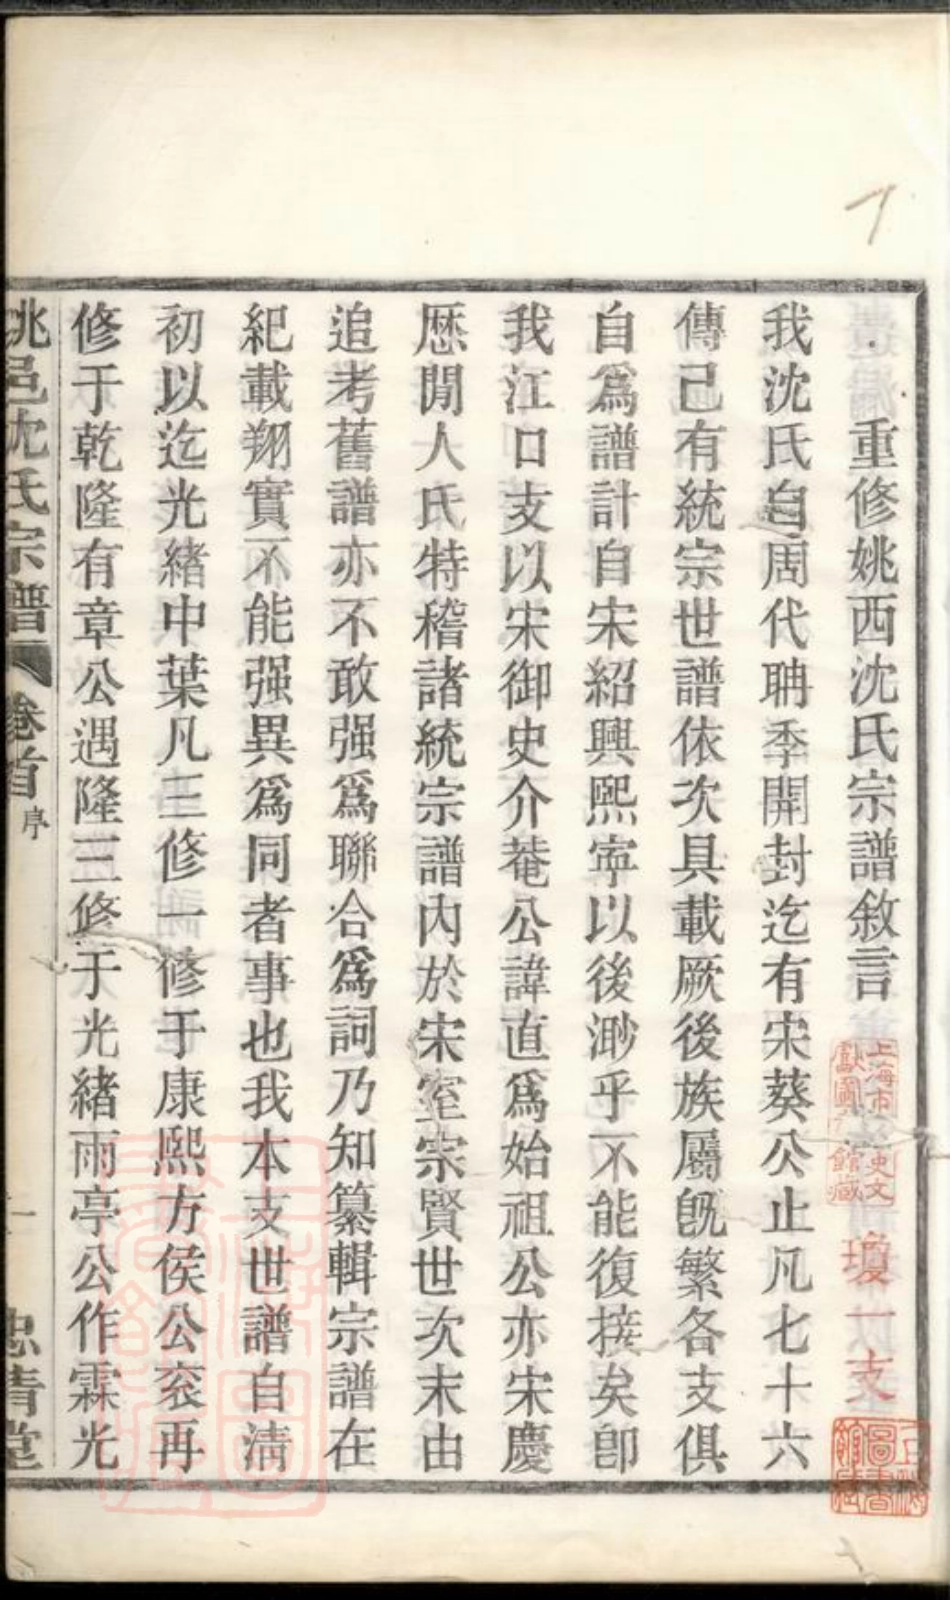 重修姚西沈氏宗譜敘言
瓊一支
我沈氏自周代聃季開封迄有宋葵公止凡七十六
傳已有統宗世譜依次具載厥後族屬旣繁各支俱
自爲譜計自宋紹興熙寧以後渺乎不能復接矣卽
我江口支以宋御史介菴公諱直爲始祖公亦宋慶
歷閒人氏特稽諸統宗譜內於宋室宗賢世次末由
追考舊譜亦不敢强爲聯合爲詞乃知纂輯宗譜在
紀載翔實不能强異爲同者事也我本支世譜自清
初以迄光緒中葉凡三修一修于康熙方侯公衮再
修于乾隆有章公遇隆三修于光緒雨亭公作霖光
姚邑沈氏宗譜 卷首 序 一 忠清堂